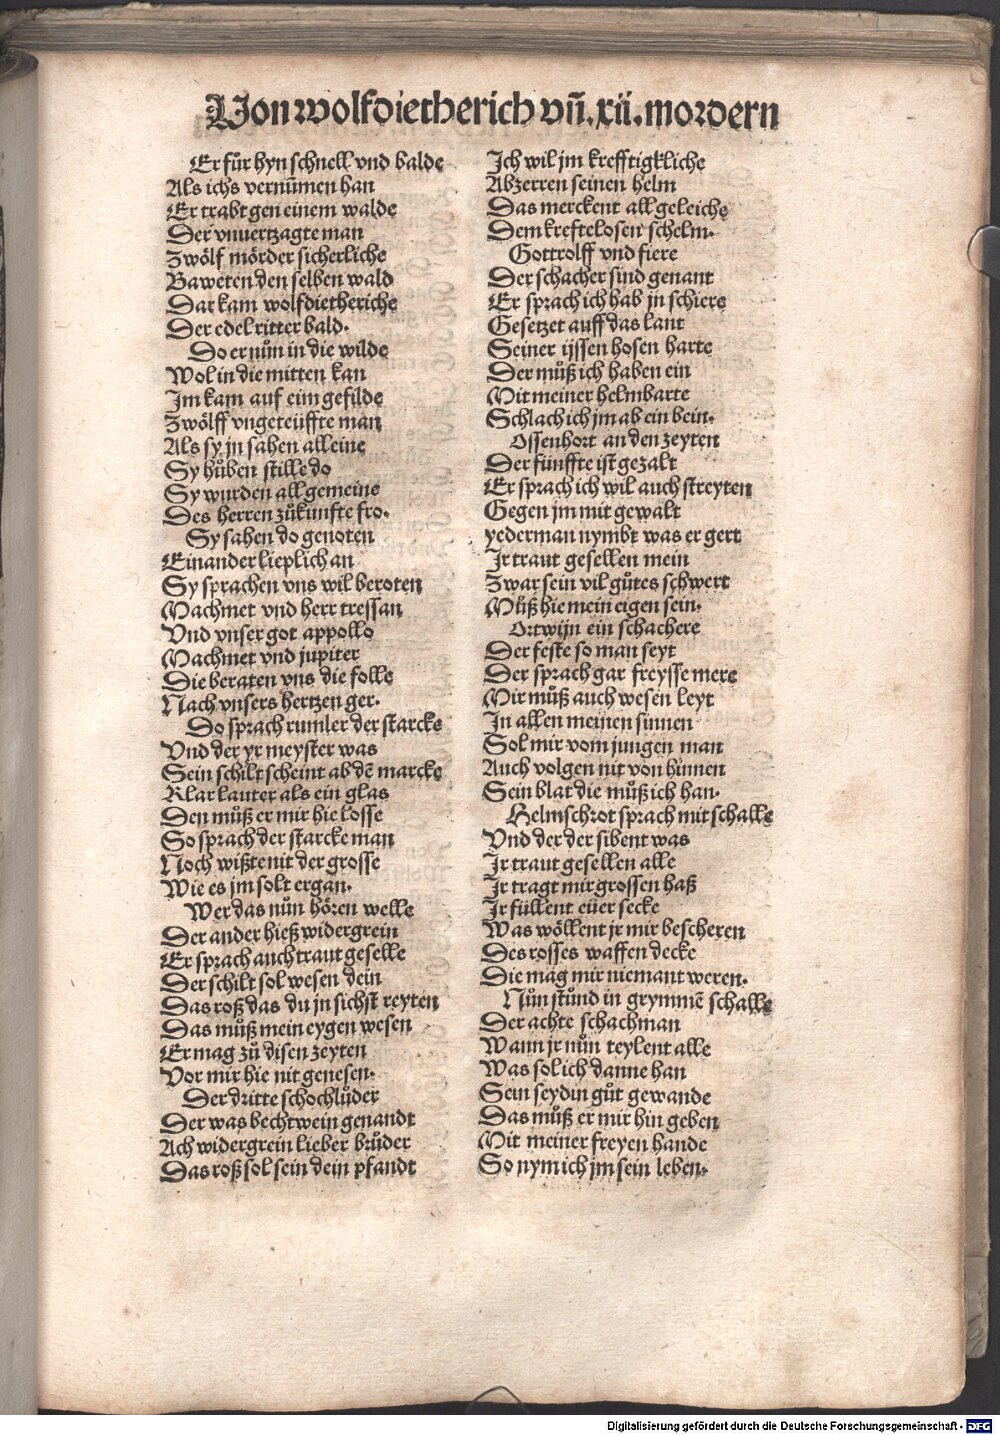 Von wolfdietherich vñ.xii.mordern
Er fůr hyn schnell vnd balde
Als ichs vernūmen han
Er trabt gen einem walde
Der vnuertzagte man
Zwölf mörder sicherliche
Baweten den selben wald
Dar kam wolfdietheriche
Der edel ritter bald.
Do er nůn in die wilde
Wol in die mitten kan
Im kam auf eim gefilde
Zwölff vngeteüffte man
Als sy jn sahen alleine
Sy hůben stille do
Sy wurden all gemeine
Des herren zůkunfte fro.
Sy sahen do genoten
Einander lieplich an
Sy sprachen vns wil beroten
Machmet vnd herr tressan
Vnd vnser got appollo
Machmet vnd jupiter
Die beraten vns die folle
Nach vnsers hertzen ger.
Do sprach rumler der starcke
Vnd der yr meyster was
Sein schilt scheint ab dē marcke
Klar lauter als ein glas
Den můß er mir hie losse
So sprach der starcke man
Noch wißte nit der grosse
Wie es jm solt ergan.
Wer das nůn hören welle
Der ander hieß widergrein
Er sprach auch traut geselle
Der schilt sol wesen dein
Das roß das du jn sichst reyten
Das můß mein eygen wesen
Er mag zů disen zeyten
Vor mir hie nit genesen.
Der dritte schochlůder
Der was bechtwein genandt
Ach widergrein lieber brůder
Das roß sol sein dein pfandt
Ich wil jm krefftigkliche
Abzerren seinen helm
Das merckent all geleiche
Dem kreftelosen schelm.
Gottrolff vnd fiere
Der schacher sind genant
Er sprach ich hab jn schiere
Gesetzet auff das lant
Seiner ijssen hosen harte
Der můß ich haben ein
Mit meiner helmbarte
Schlach ich jm ab ein bein.
Ossenhort an den zeyten
Der fünffte ist gezalt
Er sprach ich wil auch streyten
Gegen jm mit gewalt
yederman nymbt was er gert
Ir traut gesellen mein
Zwar sein vil gůtes schwert
Můß hie mein eigen sein.
Ortwijn ein schachere
Der feste so man seyt
Der sprach gar freysse mere
Mir můß auch wesen leyt
In allen meinen sinnen
Sol mir vom jungen man
Auch volgen nit von hinnen
Sein blat die můß ich han.
Helmschrot sprach mit schalle
Vnd der der sibent was
Ir traut gesellen alle
Ir tragt mir grossen haß
Ir füllent eüer secke
Was wöllent jr mir bescheren
Des rosses waffen decke
Die mag mir niemant weren.
Nůn stůnd in grymmē schalle
Der achte schachman
Wann jr nůn teylent alle
Was sol ich danne han
Sein seydin gůt gewande
Das můß er mir hin geben
Mit meiner freyen hande
So nym ich jm sein leben.
Digitalisierung gefördert durch die Deutsche Forschungsgemeinschaft - DFG